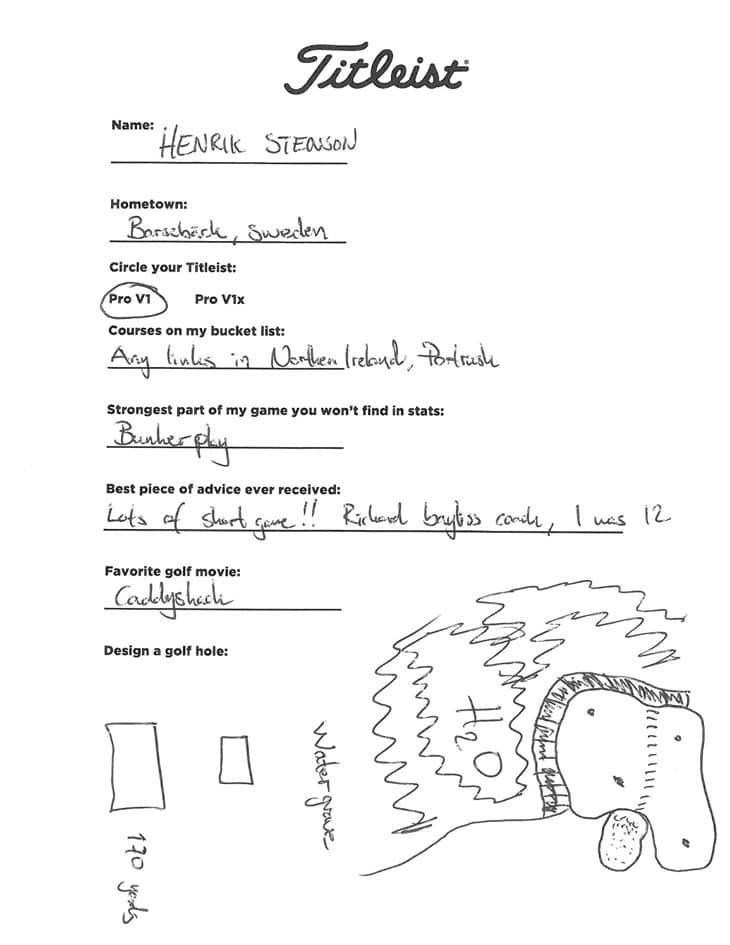 Titleist
Name: HENRIK STENSON
Hometown:
Barsebäck, Sweden
Circle your Titleist:
Pro V1 Pro V1x
Courses on my bucket list:
Any links in Northern Ireland, Portrush
Strongest part of my game you won't find in stats:
Bunker play
Best piece of advice ever received:
Lots of short game!! Richard bayliss coach, I was 12
Favorite golf movie:
Caddyshack
Design a golf hole:
H2O
Water grave
170 yards